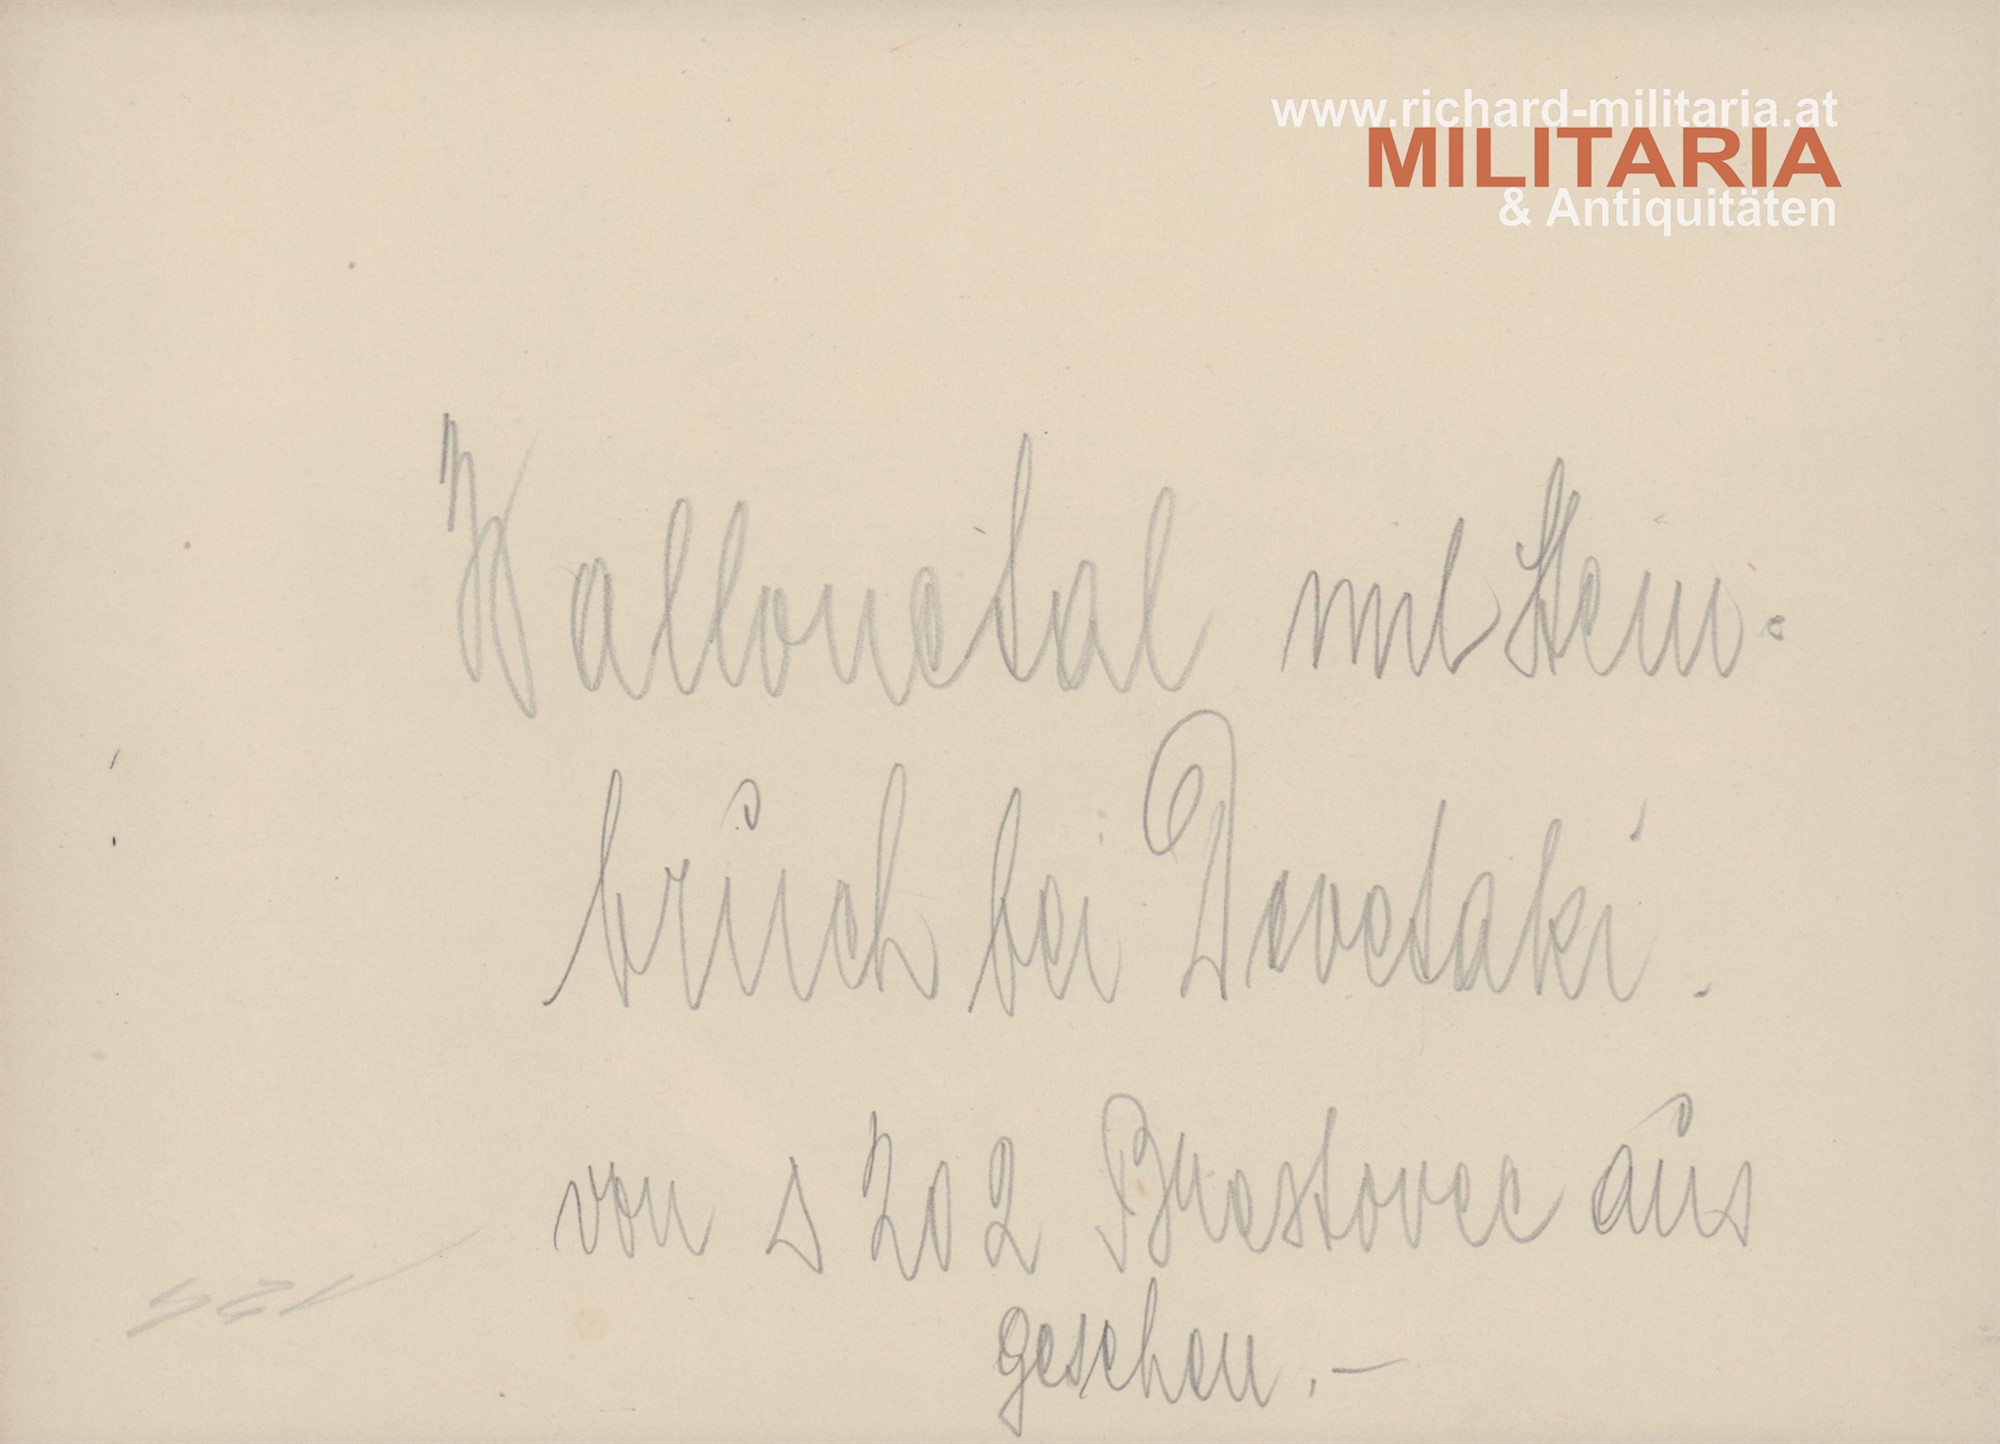 www.richard-militaria.at
MILITARIA
& Antiquitäten
Vallonetal mit Stein-
bruch bei Devetaki.
von △ 202 Brestovec aus
gesehen.-